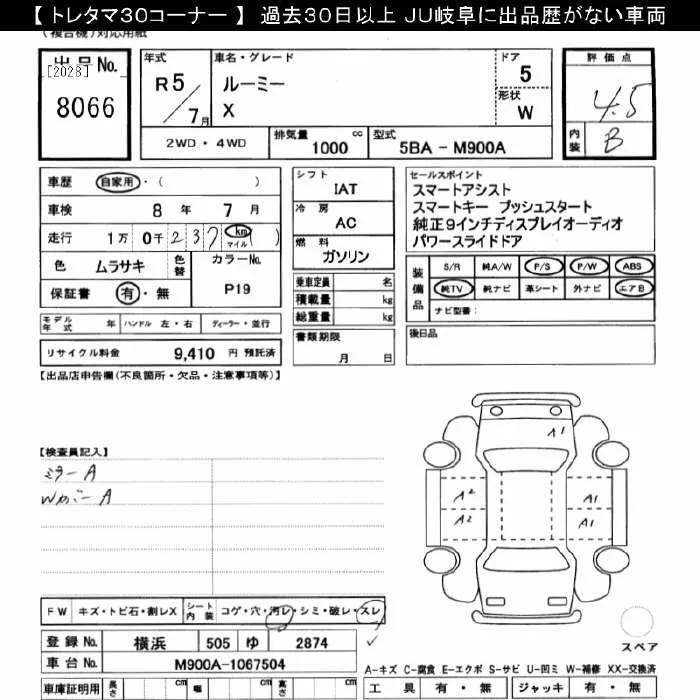 【 トレタマ30コーナー 】 過去30日以上 JU岐阜に出品歴がない車両
(複合機)対応用紙
出品No.
[2028]
8066
年式
R5/7月
車名・グレード
ルーミー
X
ドア
5
形状
W
評価点
4.5
内装
B
2WD・4WD
排気量 cc
1000
型式
5BA - M900A
車歴 自家用・( )
車検 8 年 7 月
走行 1万 0千 2 3 7 km マイル ( )
色 ムラサキ 色替
カラーNo.
P19
保証書 有・無
モデル年式 年 ハンドル 左・右 ディーラー・並行
リサイクル料金 9,410 円 預託済
シフト
IAT
冷房
AC
燃料
ガソリン
乗車定員 名
積載量 kg
総重量 kg
書類期限
月 日
セールスポイント
スマートアシスト
スマートキー プッシュスタート
純正9インチディスプレイオーディオ
パワースライドドア
装備品
S/R 純A/W P/S P/W ABS
純TV 純ナビ 革シート 外ナビ エアB
ナビ型番:
後日品
【出品店申告欄(不良箇所・欠品・注意事項等)】
【検査員記入】
ミラーA
WカバーA
A1
A2 A1
A2 A1
FW キズ・トビ石・割レX シート内装 コゲ・穴・汚レ・シミ・破レ・スレ
登録No. 横浜 505 ゆ 2874
車台No. M900A-1067504
車庫証明用 長さ cm 幅 cm 高さ cm
スペア
A-キズ C-腐食 E-エクボ S-サビ U-凹ミ W-補修 XX-交換済
工具 有・無 ジャッキ 有・無